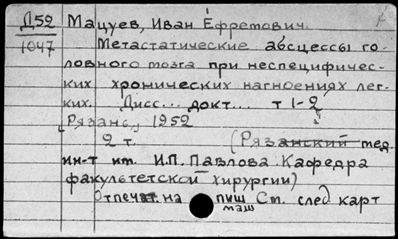 Д52 Мацуев, Иван Ефремович.
1047 Метастатические абсцессы го-
ловного мозга при неспецифичес-
ких хронических нагноениях лег-
ких. Дисс... докт... т 1-2
Рязань, 1952
2 т. (Рязанский мед.
ин-т им. И.П. Павлова. Кафедра
факультетской хирургии)
Отпечат. на пиш Ст. след карт
маш